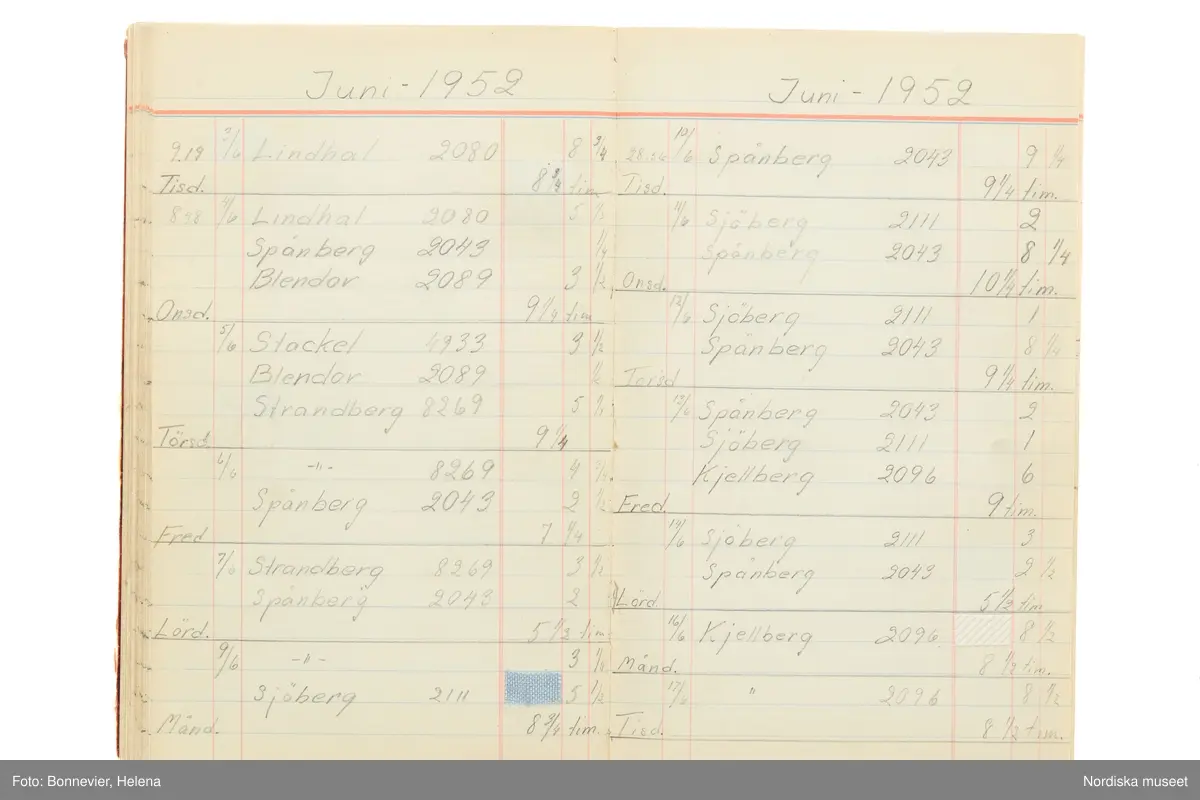 Juni - 1952
9.19 3/6 Lindhal 2080 8 3/4
Tisd. 8 3/4 tim.
4/6 Lindhal 2080 5 1/2
Spånberg 2043 1/4
Blendor 2089 3 1/2
Onsd. 9 1/4 tim
5/6 Stackel 4933 3 1/2
Blendor 2089 1/2
Strandberg 8269 5
Törsd. 9 1/4
6/6 -"- 8269 4
Spånberg 2043 2 1/2
Fred 7 1/4
7/6 Strandberg 8269 3 1/2
Spånberg 2043 2
Lörd. 5 1/2 tim.
9/6 -"- 3 1/4
Sjöberg 2111 5 1/2
Månd. 8 3/4 tim.
Juni - 1952
10/6 Spånberg 2043 9 1/4
Tisd. 9 1/4 tim.
11/6 Sjöberg 2111 2
Spånberg 2043 8 1/4
Onsd. 10 1/4 tim.
12/6 Sjöberg 2111 1
Spånberg 2043 8 1/4
Torsd 9 1/4 tim.
13/6 Spånberg 2043 2
Sjöberg 2111 1
Kjellberg 2096 6
Fred. 9 tim.
14/6 Sjöberg 2111 3
Spånberg 2043 2 1/2
Lörd. 5 1/2 tim
16/6 Kjellberg 2096 8 1/2
Månd. 8 1/2 tim.
17/6 " 2096 8 1/2
Tisd. 8 1/2 tim.
Foto: Bonnevier, Helena
Nordiska museet